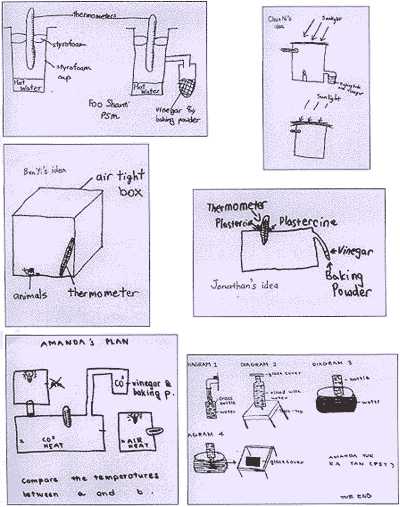 thermometers
styrofoam
styrofoam
cup
Hot
Water
Hot
Water
Foo Shanti
P5M
vinegar &
baking powder
Chun Ni's
idea
Sunlight
Sunlight
BenYi's idea
air tight
box
animals
thermometer
Thermometer
Plastercine
Plastercine
Vinegar
Baking
Powder
Jonathan's idea
AMANDA'S PLAN
CO²
vinegar &
baking p.
a
CO²
HEAT
b
AIR
HEAT
Compare the temperatures
between a and b.
DIAGRAM 1
DIAGRAM 2
DIAGRAM 3
glass cover
glass
bottle
water
filled with
water
bottle
water
AGRAM 4
glass cover
AMANDA YUK
THE END